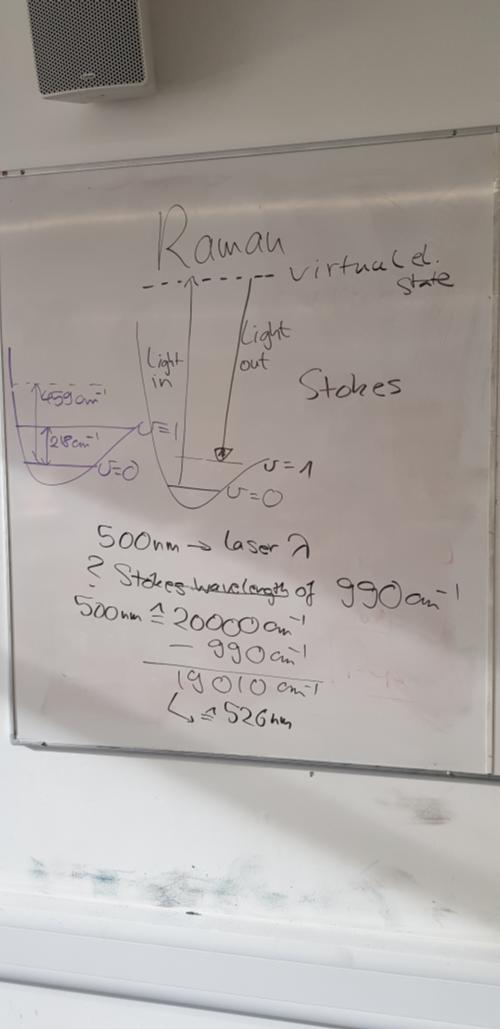 Raman
virtual el.
state
Light
in
Light
out
Stokes
459cm⁻¹
218cm⁻¹
υ=1
υ=0
υ=1
υ=0
500nm → laser λ
? Stokes wavelength of 990cm⁻¹
500nm ≙ 20000cm⁻¹
– 990cm⁻¹
19010 cm⁻¹
↳ ≙ 526nm